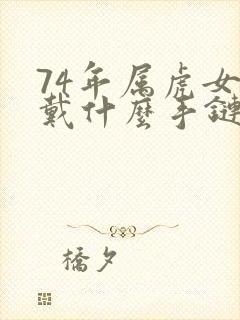 74年属虎女
戴什麼手鏈
橋夕